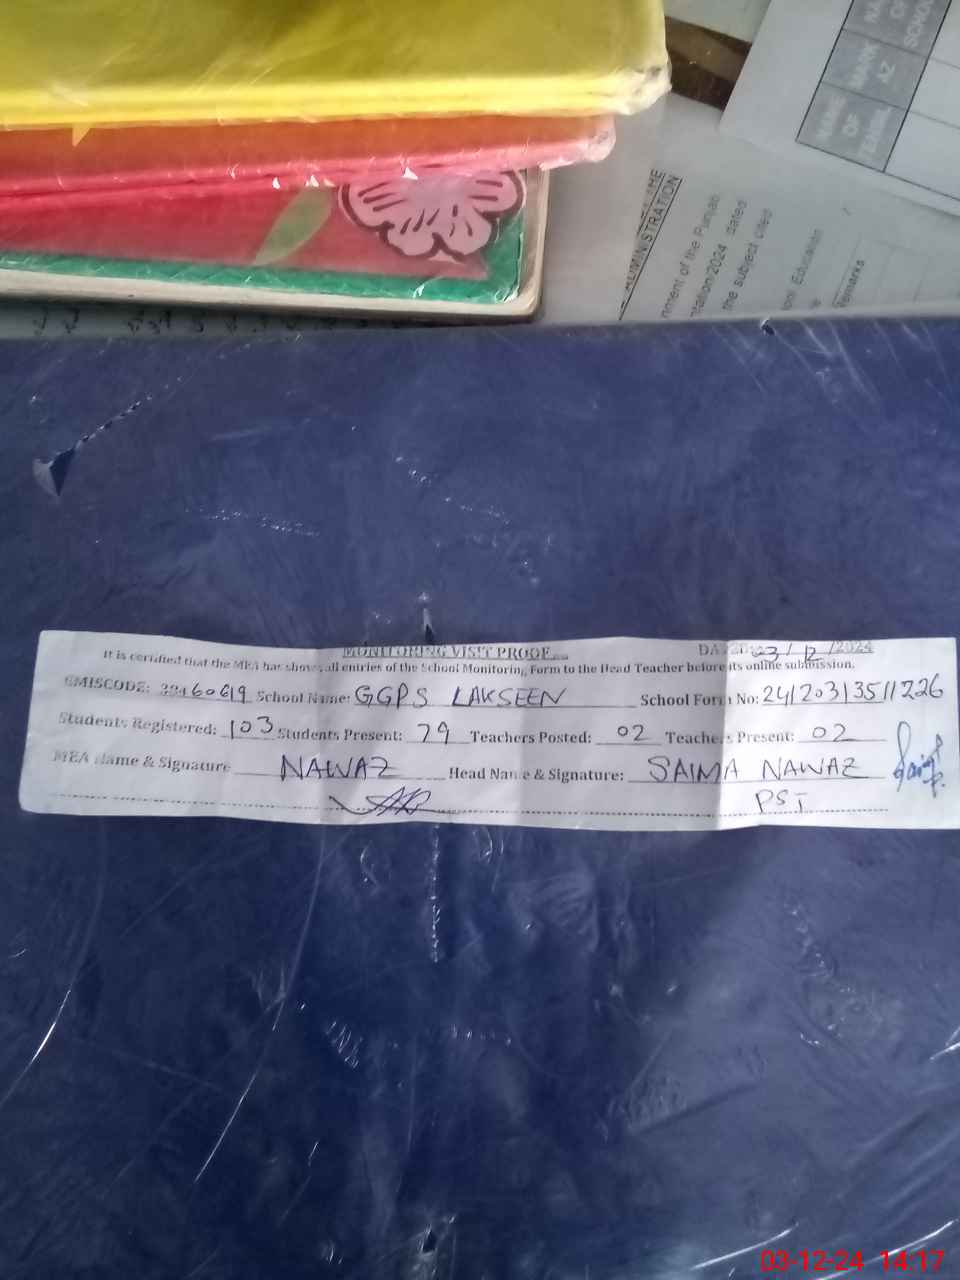 NAME OF
MARK AZ
NA OF SCHOO
MINISTRATION
nment of the Punjab
2024 dated
the subject cited
Education
Remarks
MONITORING VISIT PROOF
/12/2024
It is certified that the MEA has shown all entries of the School Monitoring Form to the Head Teacher before its online submission.
EMISCODE: School Name: GGPS LAKSEEN School Form No:
Students Registered: 103 Students Present: 79 Teachers Posted: 02 Teachers Present: 02
MEA Name & Signature NAWAZ Head Name & Signature: SAIMA NAWAZ
PST
03-12-24 14:17